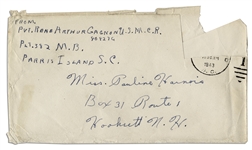 FROM
Pvt. Rene Arthur Gagnon U.S.M.C.R.
Plt. 332 M.B.
Parris Island S.C.
1943
1
Miss. Pauline Harnois
Box 31 Route 1
Hooksett N.H.